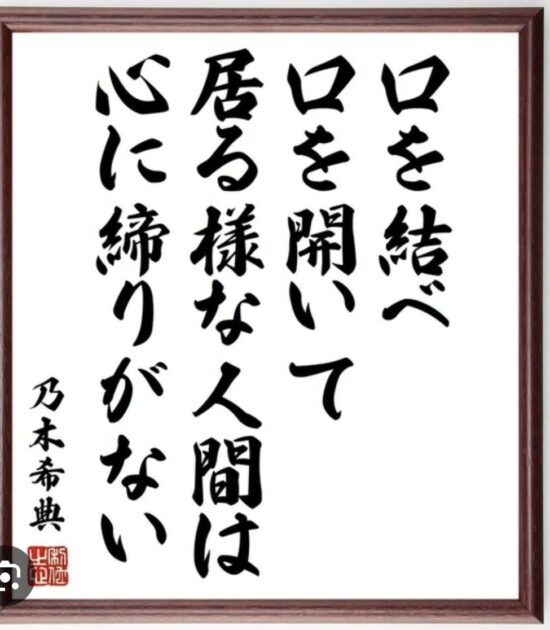 口を結べ
口を開いて
居る様な人間は
心に締りがない
乃木希典